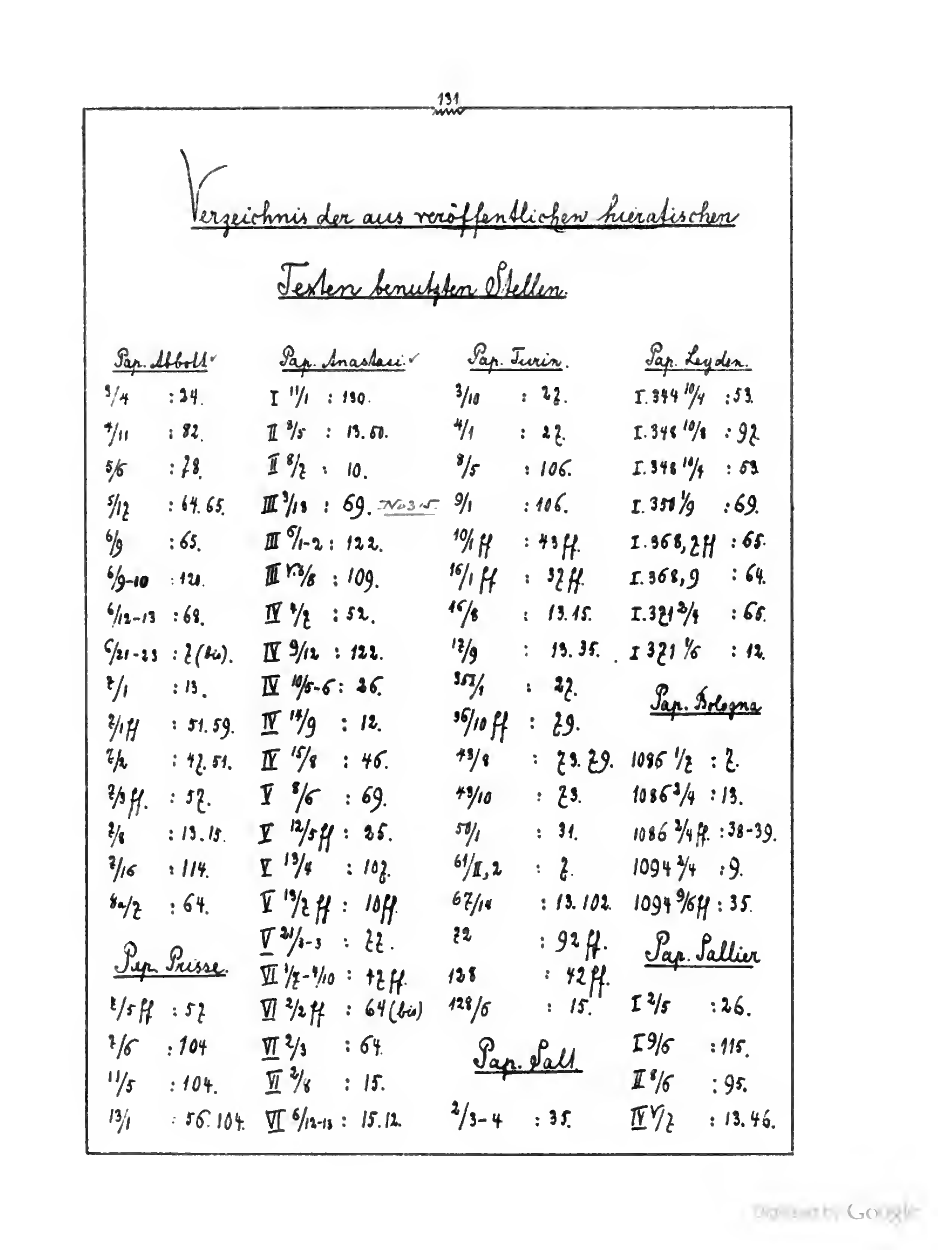 131
Verzeichnis der aus veröffentlichen hieratischen
Texten benutzten Stellen.
Pap. Abbott
3/4 : 24.
4/11 : 82.
5/6 : 78.
5/17 : 64.65.
6/9 : 65.
6/9-10 : 120.
6/12-13 : 68.
6/21-23 : 7 (bis).
7/1 : 13.
7/1 ff : 51.59.
7/2 : 47.51.
7/3 ff. : 57.
7/8 : 13.15.
7/16 : 114.
8a/7 : 64.
Pap. Prisse.
2/5 ff : 57
7/6 : 104
11/5 : 104.
13/1 : 56.104.
Pap. Anastasi.
I 11/1 : 130.
II 3/5 : 13.50.
II 8/7 : 10.
III 3/13 : 69. No 315
III 6/1-2 : 122.
III V.3/8 : 109.
IV 4/7 : 52.
IV 9/12 : 122.
IV 10/5-6 : 26.
IV 14/9 : 12.
IV 15/8 : 46.
V 8/6 : 69.
V 12/5 ff : 25.
V 13/4 : 107.
V 19/7 ff : 10 ff.
V 21/2-3 : 77.
VI 1/7-4/10 : 47 ff.
VI 2/2 ff : 64 (bis)
VI 2/3 : 64.
VI 2/8 : 15.
VI 6/12-13 : 15.12.
Pap. Turin.
3/10 : 27.
4/1 : 27.
8/5 : 106.
9/1 : 106.
10/1 ff : 43 ff.
16/1 ff : 37 ff.
16/8 : 13.15.
17/9 : 13.35.
: 27.
36/10 ff : 79.
43/8 : 73.79.
43/10 : 73.
50/1 : 31.
61/II,2 : 7.
67/14 : 13.102.
72 : 92 ff.
128 : 42 ff.
128/6 : 15.
Pap. Salt.
2/3-4 : 35.
Pap. Leyden.
I.344 10/4 : 53.
I.348 10/8 : 97.
I.348 10/4 : 53
I.350 1/9 : 69.
I.368,7 ff : 65.
I.368,9 : 64.
I.371 3/4 : 65.
I 371 1/6 : 12.
Pap. Bologna
1086 1/7 : 7.
1086 3/4 : 13.
1086 3/4 ff. : 38-39.
1094 2/4 : 9.
1094 9/6 ff : 35.
Pap. Sallier
I 2/5 : 26.
I 9/6 : 115.
II 8/6 : 95.
IV V/7 : 13.46.
Digitized by Google